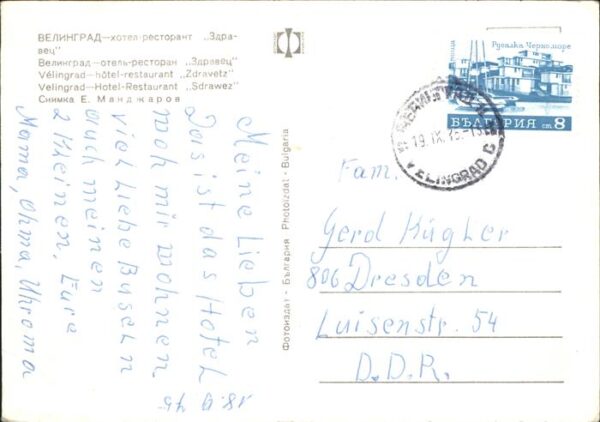 ВЕЛИНГРАД—хотел-ресторант „Здра-
вец"
Велинград—отель-ресторан „Здравец"
Vélingrad—hôtel-restaurant „Zdravetz"
Velingrad—Hotel-Restaurant „Sdrawez"
Снимка Е. Манджаров
Фотоиздат - България Photoizdat - Bulgaria
Русалка Черноморе
БЪЛГАРИЯ ст. 8
19. IX. 75
VELINGRAD C
Meine Lieben
Das ist das Hotel
woh mir wohnen
viel liebe Buseln
auch meinen
2 Kleinen, Eure
Mama, Ohma, Uhroma
18. 9 75
Fam.
Gerd Kügler
806 Dresden
Luisenstr. 54
D.D.R.